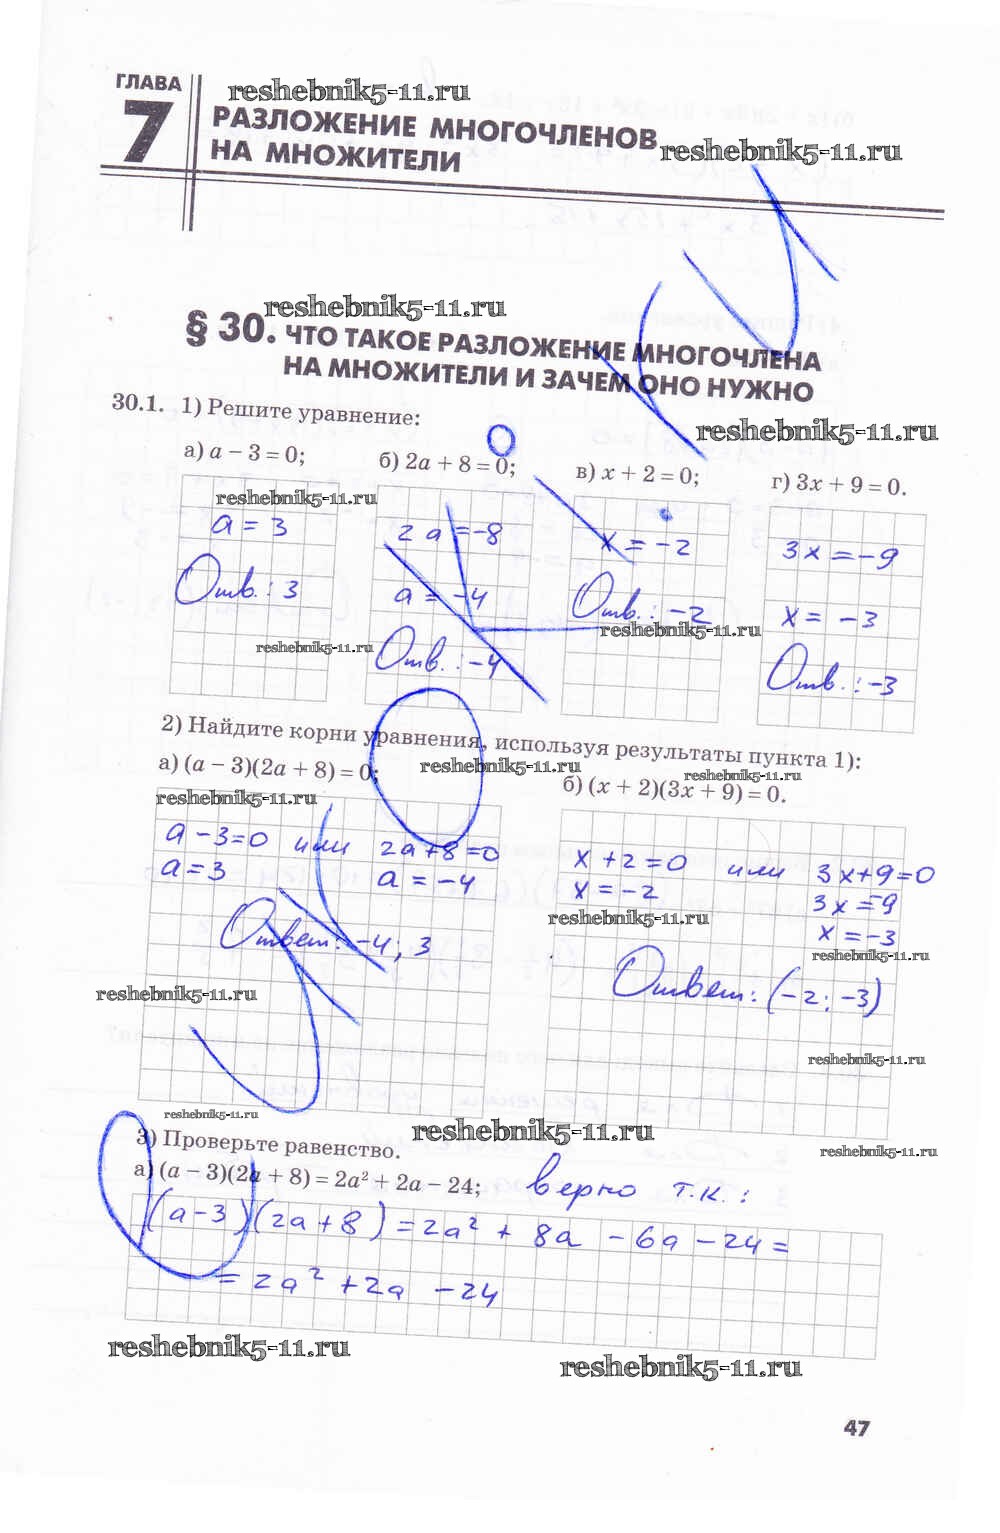 ГЛАВА
7
reshebnik5-11.ru
РАЗЛОЖЕНИЕ МНОГОЧЛЕНОВ
НА МНОЖИТЕЛИ
reshebnik5-11.ru
reshebnik5-11.ru
§ 30. ЧТО ТАКОЕ РАЗЛОЖЕНИЕ МНОГОЧЛЕНА
НА МНОЖИТЕЛИ И ЗАЧЕМ ОНО НУЖНО
30.1. 1) Решите уравнение:
reshebnik5-11.ru
а) a − 3 = 0;
reshebnik5-11.ru
a = 3
Отв.: 3
reshebnik5-11.ru
б) 2a + 8 = 0;
2a = −8
a = −4
Отв.: −4
в) x + 2 = 0;
x = −2
Отв.: −2
reshebnik5-11.ru
г) 3x + 9 = 0.
3x = −9
x = −3
Отв.: −3
2) Найдите корни уравнения, используя результаты пункта 1):
а) (a − 3)(2a + 8) = 0;
reshebnik5-11.ru
reshebnik5-11.ru
a − 3 = 0 или 2a + 8 = 0
a = 3 a = −4
Ответ: −4; 3
reshebnik5-11.ru
reshebnik5-11.ru
б) (x + 2)(3x + 9) = 0.
x + 2 = 0 или 3x + 9 = 0
x = −2 3x = −9
reshebnik5-11.ru
x = −3
reshebnik5-11.ru
Ответ: (−2; −3)
reshebnik5-11.ru
reshebnik5-11.ru
reshebnik5-11.ru
reshebnik5-11.ru
3) Проверьте равенство.
а) (a − 3)(2a + 8) = 2a² + 2a − 24; верно т.к.:
(a − 3)(2a + 8) = 2a² + 8a − 6a − 24 =
= 2a² + 2a − 24
reshebnik5-11.ru
reshebnik5-11.ru
47